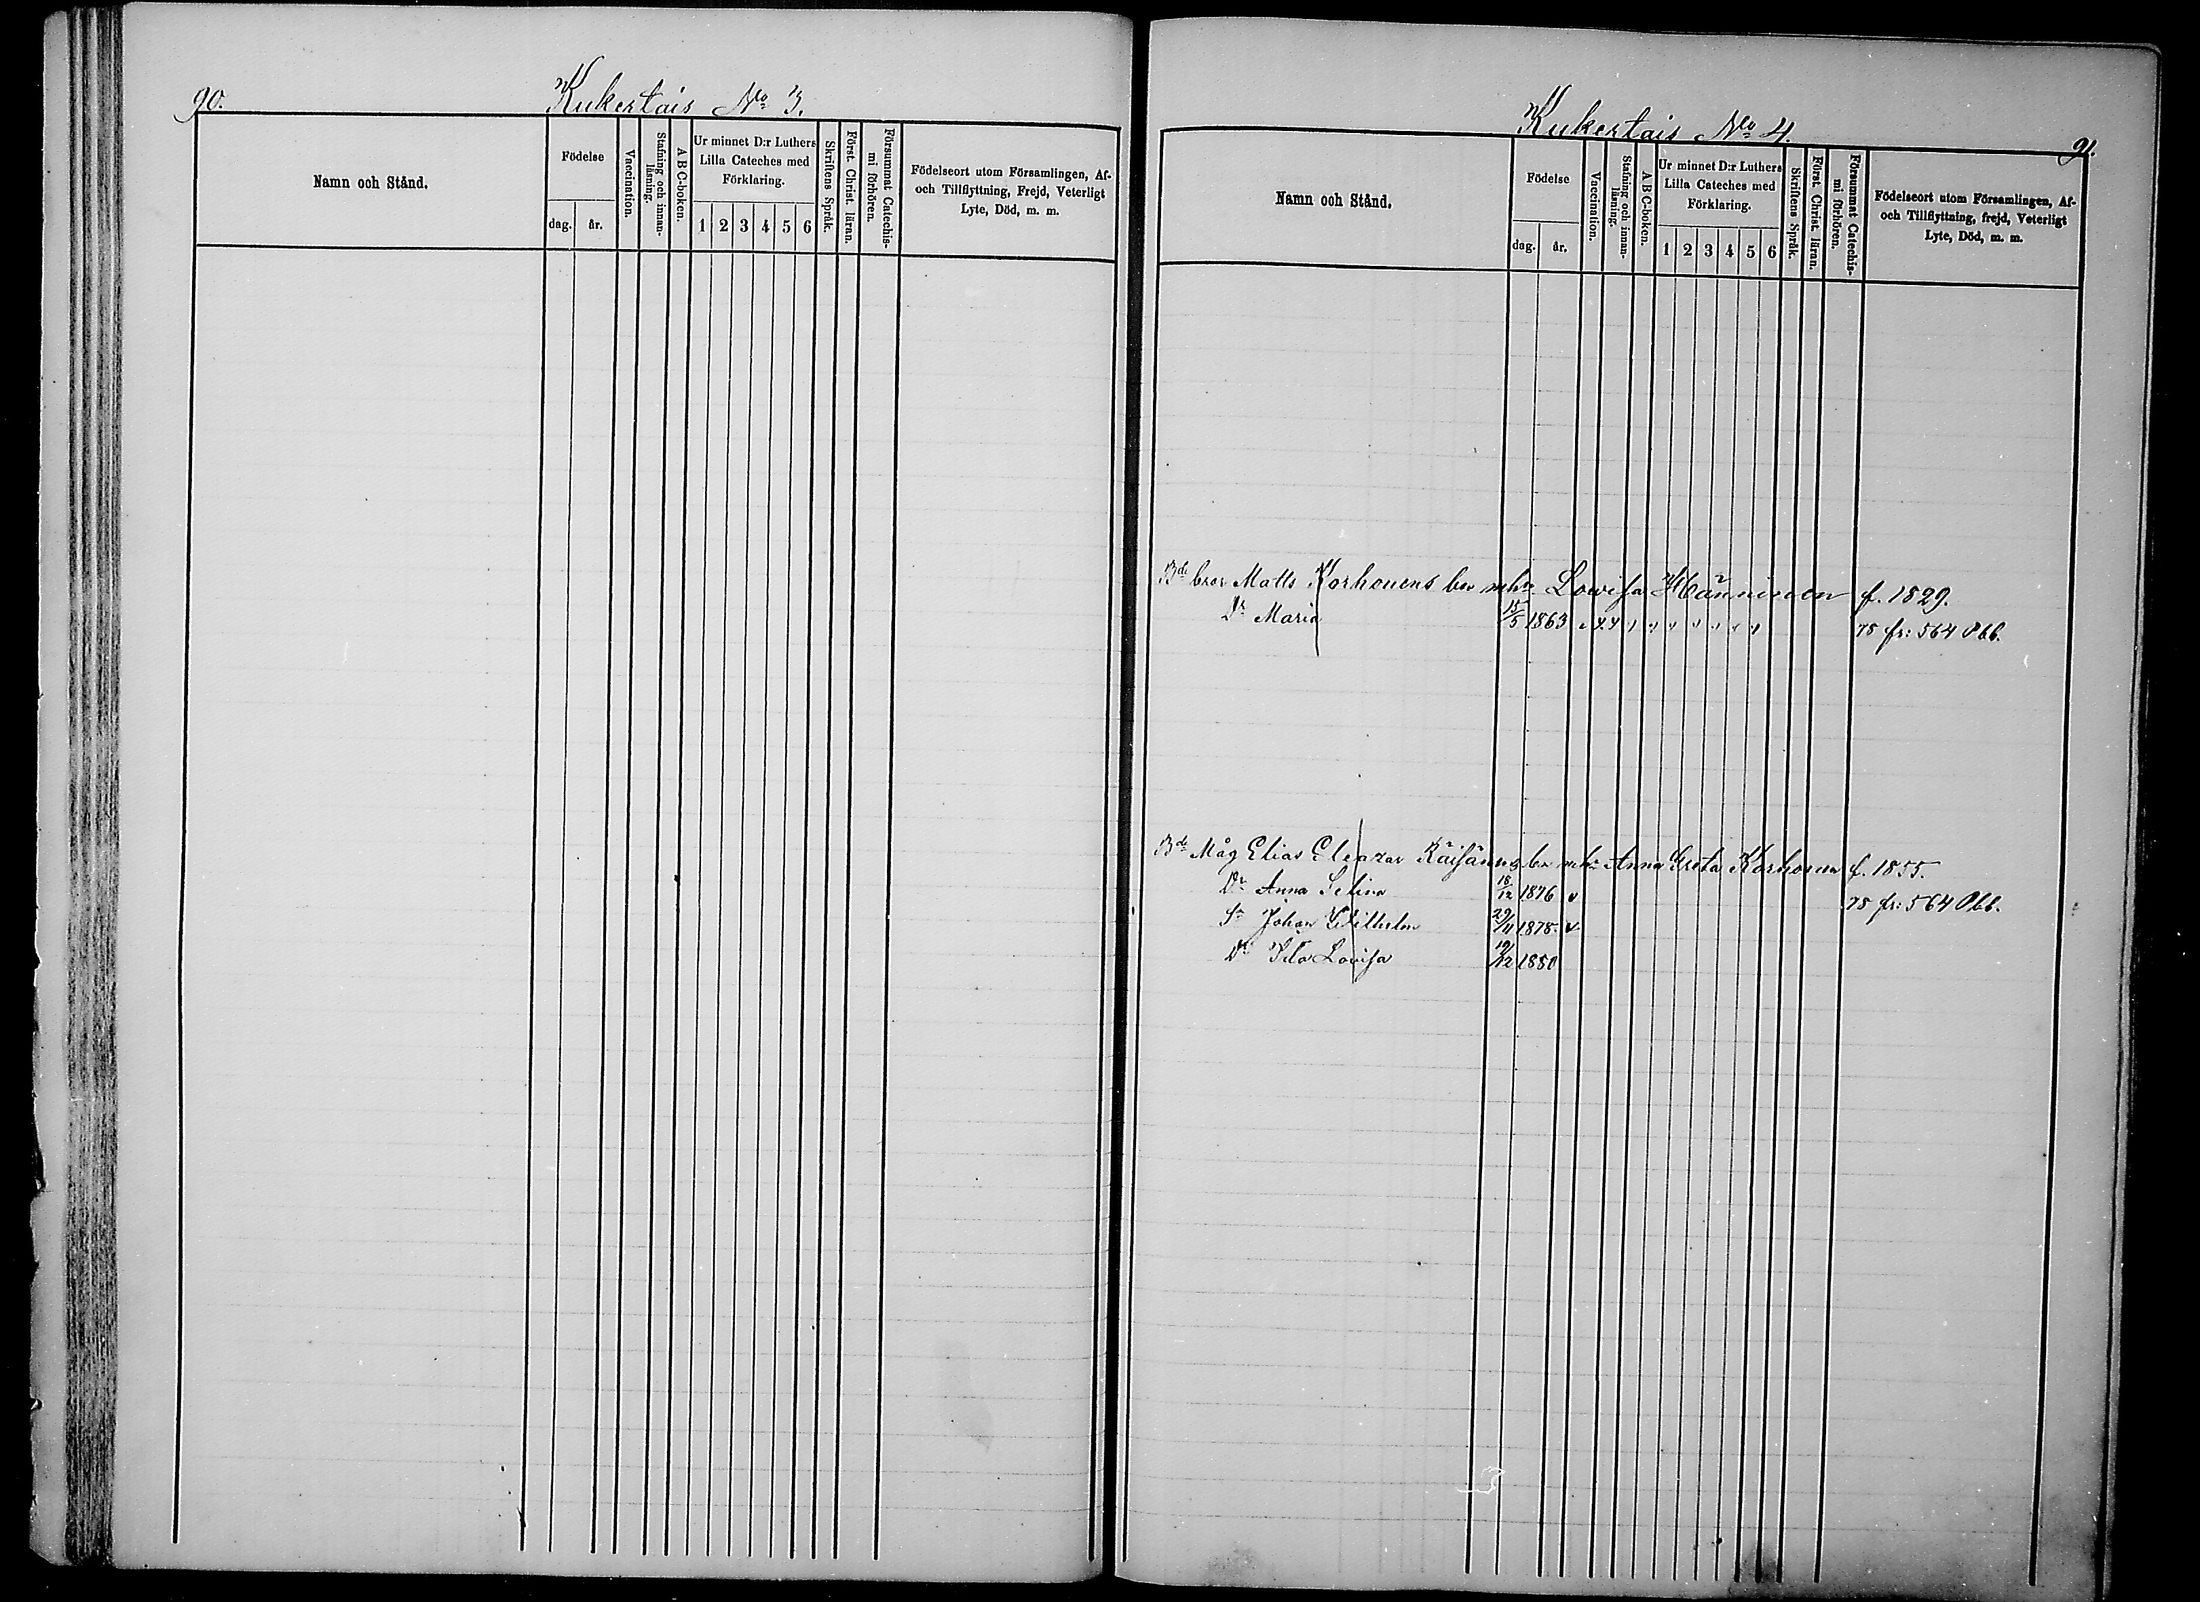 90.
Kukertais No 3.
Namn och Stånd.
Födelse
dag.
år.
Vaccination.
Stafning och innan-
läsning.
A B C-boken.
Ur minnet D:r Luthers
Lilla Cateches med
Förklaring.
1 2 3 4 5 6
Skriftens Språk.
Först. Christ. läran.
Försummat Catechis-
mi förhören.
Födelseort utom Församlingen, Af-
och Tillflyttning, Frejd, Veterligt
Lyte, Död, m. m.
Kukertais No 4.
91.
Namn och Stånd.
Födelse
dag.
år.
Vaccination.
Stafning och innan-
läsning.
A B C-boken.
Ur minnet D:r Luthers
Lilla Cateches med
Förklaring.
1 2 3 4 5 6
Skriftens Språk.
Först. Christ. läran.
Försummat Catechis-
mi förhören.
Födelseort utom Församlingen, Af-
och Tillflyttning, frejd, Veterligt
Lyte, Död, m. m.
Bde bror Matts Korhonens Lovisa Hänninen f. 1829.
Dr Maria 15/5 1863 78 fr: 564 Obb.
Bde Måg Elias Eleazar Räisänens Anna Greta Korhonen f. 1855.
Dr Anna Selina 18/12 1876 v 78 fr: 564 Obb.
Sn Johan Wilhelm 29/11 1878. v
Dr Ida Lovisa 19/12 1880